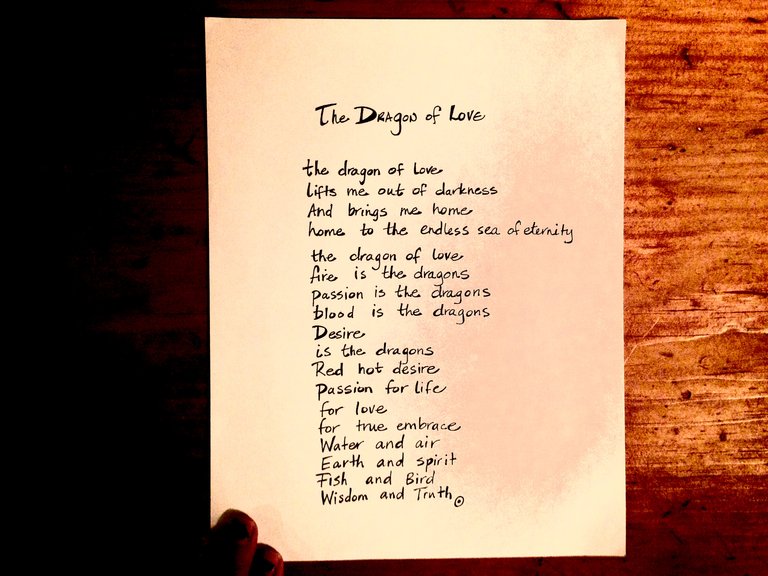 The Dragon of Love
the dragon of Love
lifts me out of darkness
And brings me home
home to the endless sea of eternity
the dragon of love
fire is the dragons
passion is the dragons
blood is the dragons
Desire
is the dragons
Red hot desire
Passion for life
for love
for true embrace
Water and air
Earth and spirit
Fish and Bird
Wisdom and Truth